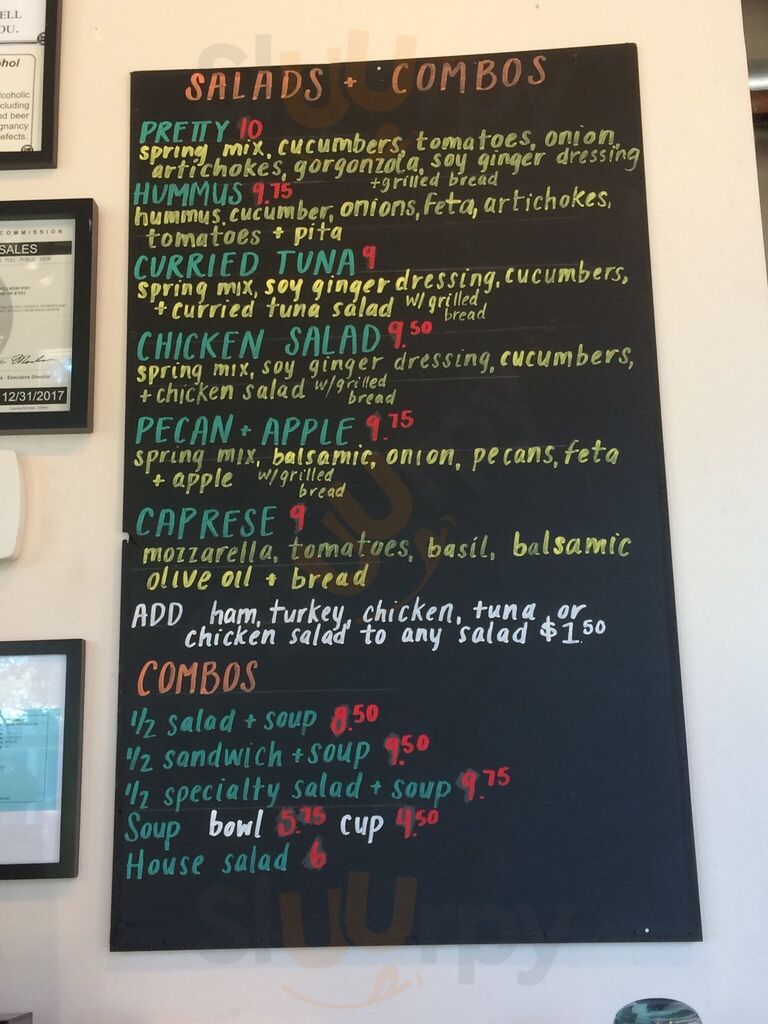 ELL
OU.
ohol
coholic
cluding
nd beer
gnancy
efects.
COMMISSION
SALES
FULL PUBLIC VIEW
- Executive Director
12/31/2017
SALADS + COMBOS
PRETTY 10
spring mix, cucumbers, tomatoes, onion,
artichokes, gorgonzola, soy ginger dressing
+grilled bread
HUMMUS 9.75
hummus, cucumber, onions, feta, artichokes,
tomatoes + pita
CURRIED TUNA 9
spring mix, soy ginger dressing, cucumbers,
+ curried tuna salad w/grilled
bread
CHICKEN SALAD 9.50
spring mix, soy ginger dressing, cucumbers,
+ chicken salad w/grilled
bread
PECAN + APPLE 9.75
spring mix, balsamic, onion, pecans, feta
+ apple w/grilled
bread
CAPRESE 9
mozzarella, tomatoes, basil, balsamic
olive oil + bread
ADD ham, turkey, chicken, tuna or
chicken salad to any salad $1.50
COMBOS
1/2 salad + soup 8.50
1/2 sandwich + soup 9.50
1/2 specialty salad + soup 9.75
Soup bowl 5.75 cup 4.50
House salad 6
Sluurpy